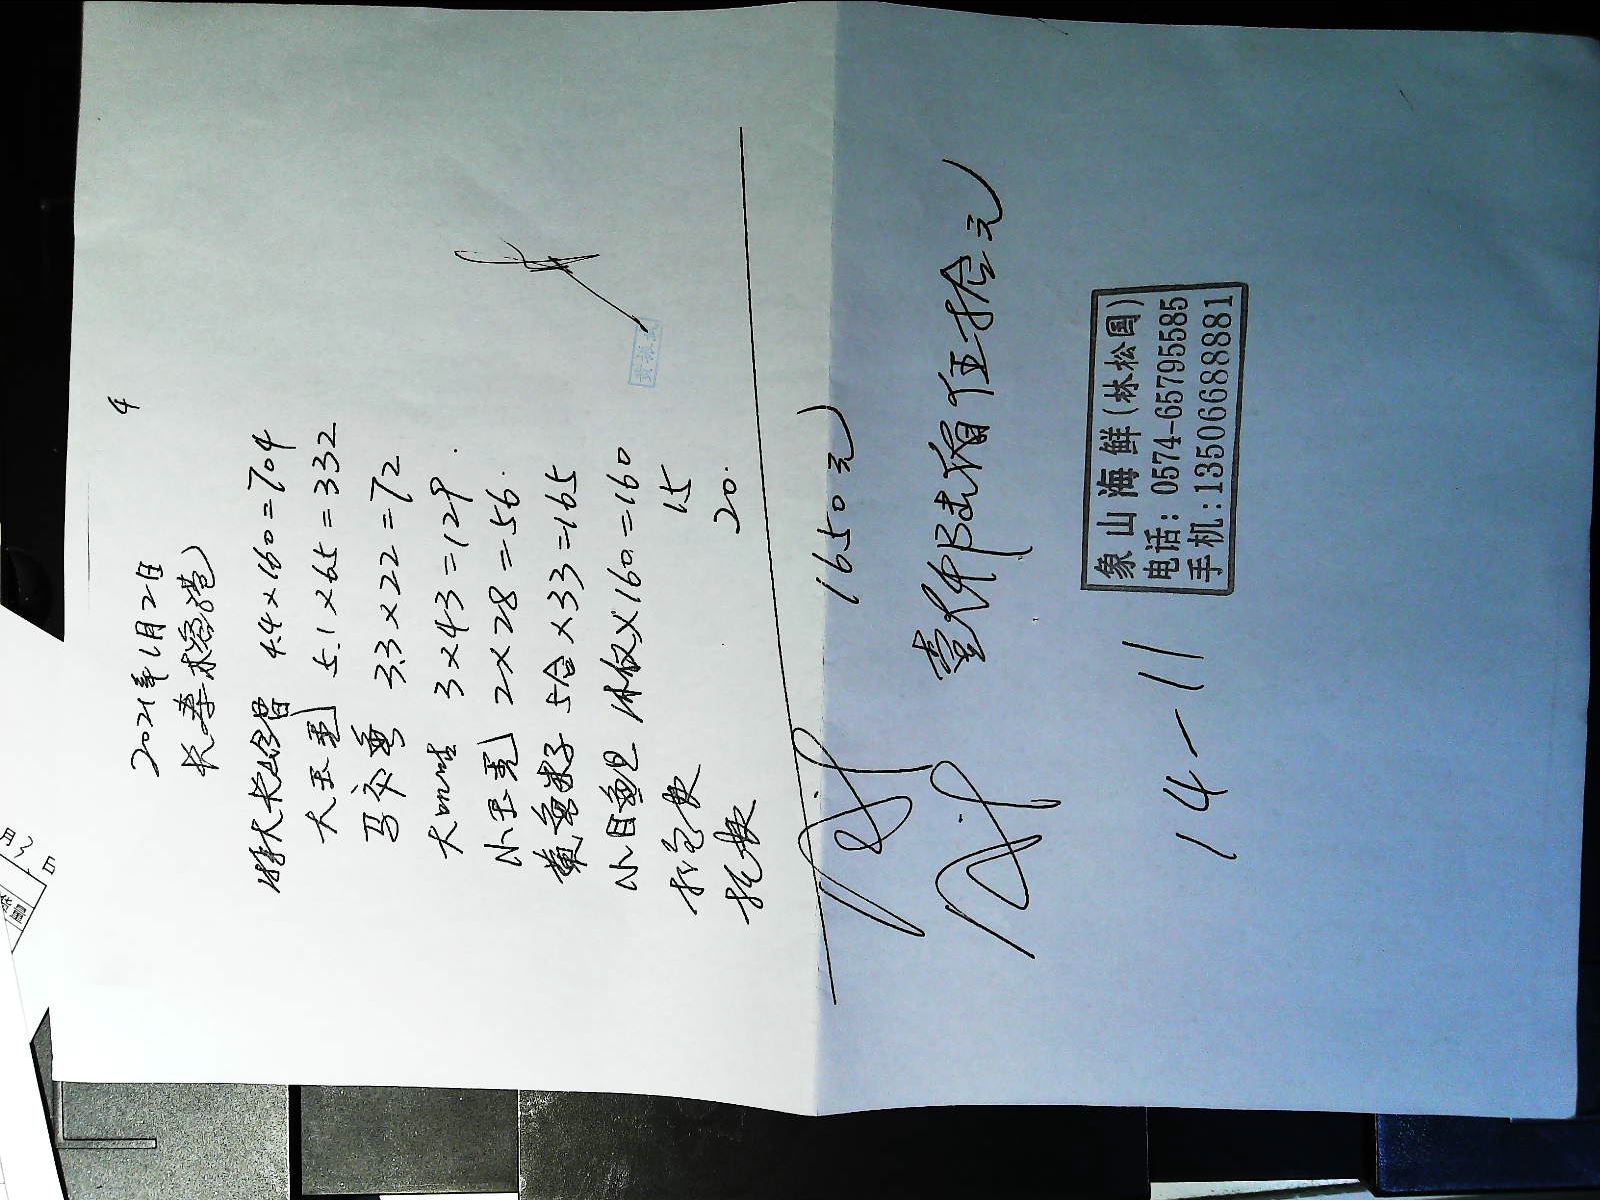 4
2021年1月2日
特大长 4.4×160=704
大玉秃 5.1×65=332
马交鱼 3.3×22=72
大 3×43=129.
小玉秃 2×28=56.
黄鱼 5合×33=165
小目鱼旦 ×160=160
打包费 15
20.
1650元
壹仟陆佰伍拾元
14-11
象山海鲜(林松国)
电话: 0574-65795585
手机: 13506688881
月3日
货量